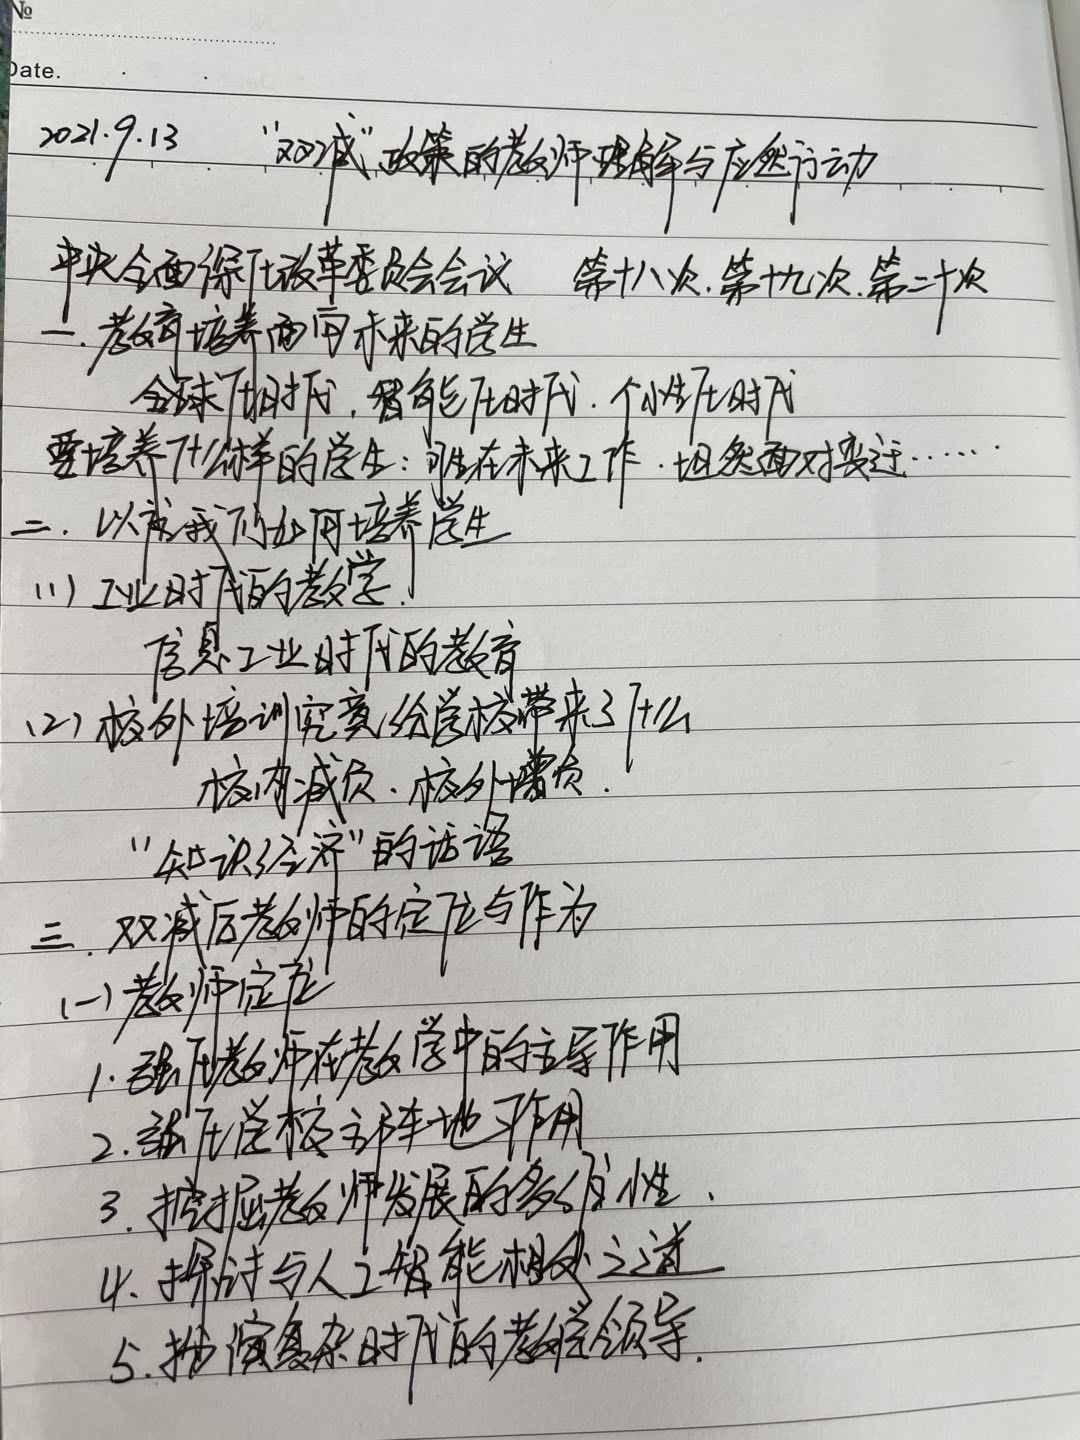 №
Date.
2021.9.13 “双减”政策的教师理解与应然行动
中央全面深化改革委员会会议 第十八次.第十九次.第二十次
一.教育培养面向未来的学生
全球化时代,智能化时代.个性化时代
要培养什么样的学生:胜在未来工作.坦然面对变迁……
二.以前我们如何培养学生
(1)工业时代的教学.
信息工业时代的教育
(2)校外培训究竟给学校带来了什么
校内减负.校外增负.
“知识经济”的话语
三.双减后教师的定位与作为
(一)教师定位
1.强化教师在教学中的主导作用
2.强化学校主阵地作用
3.挖掘教师发展的多价性.
4.探讨与人工智能相处之道
5.扮演复杂时代的教学领导.